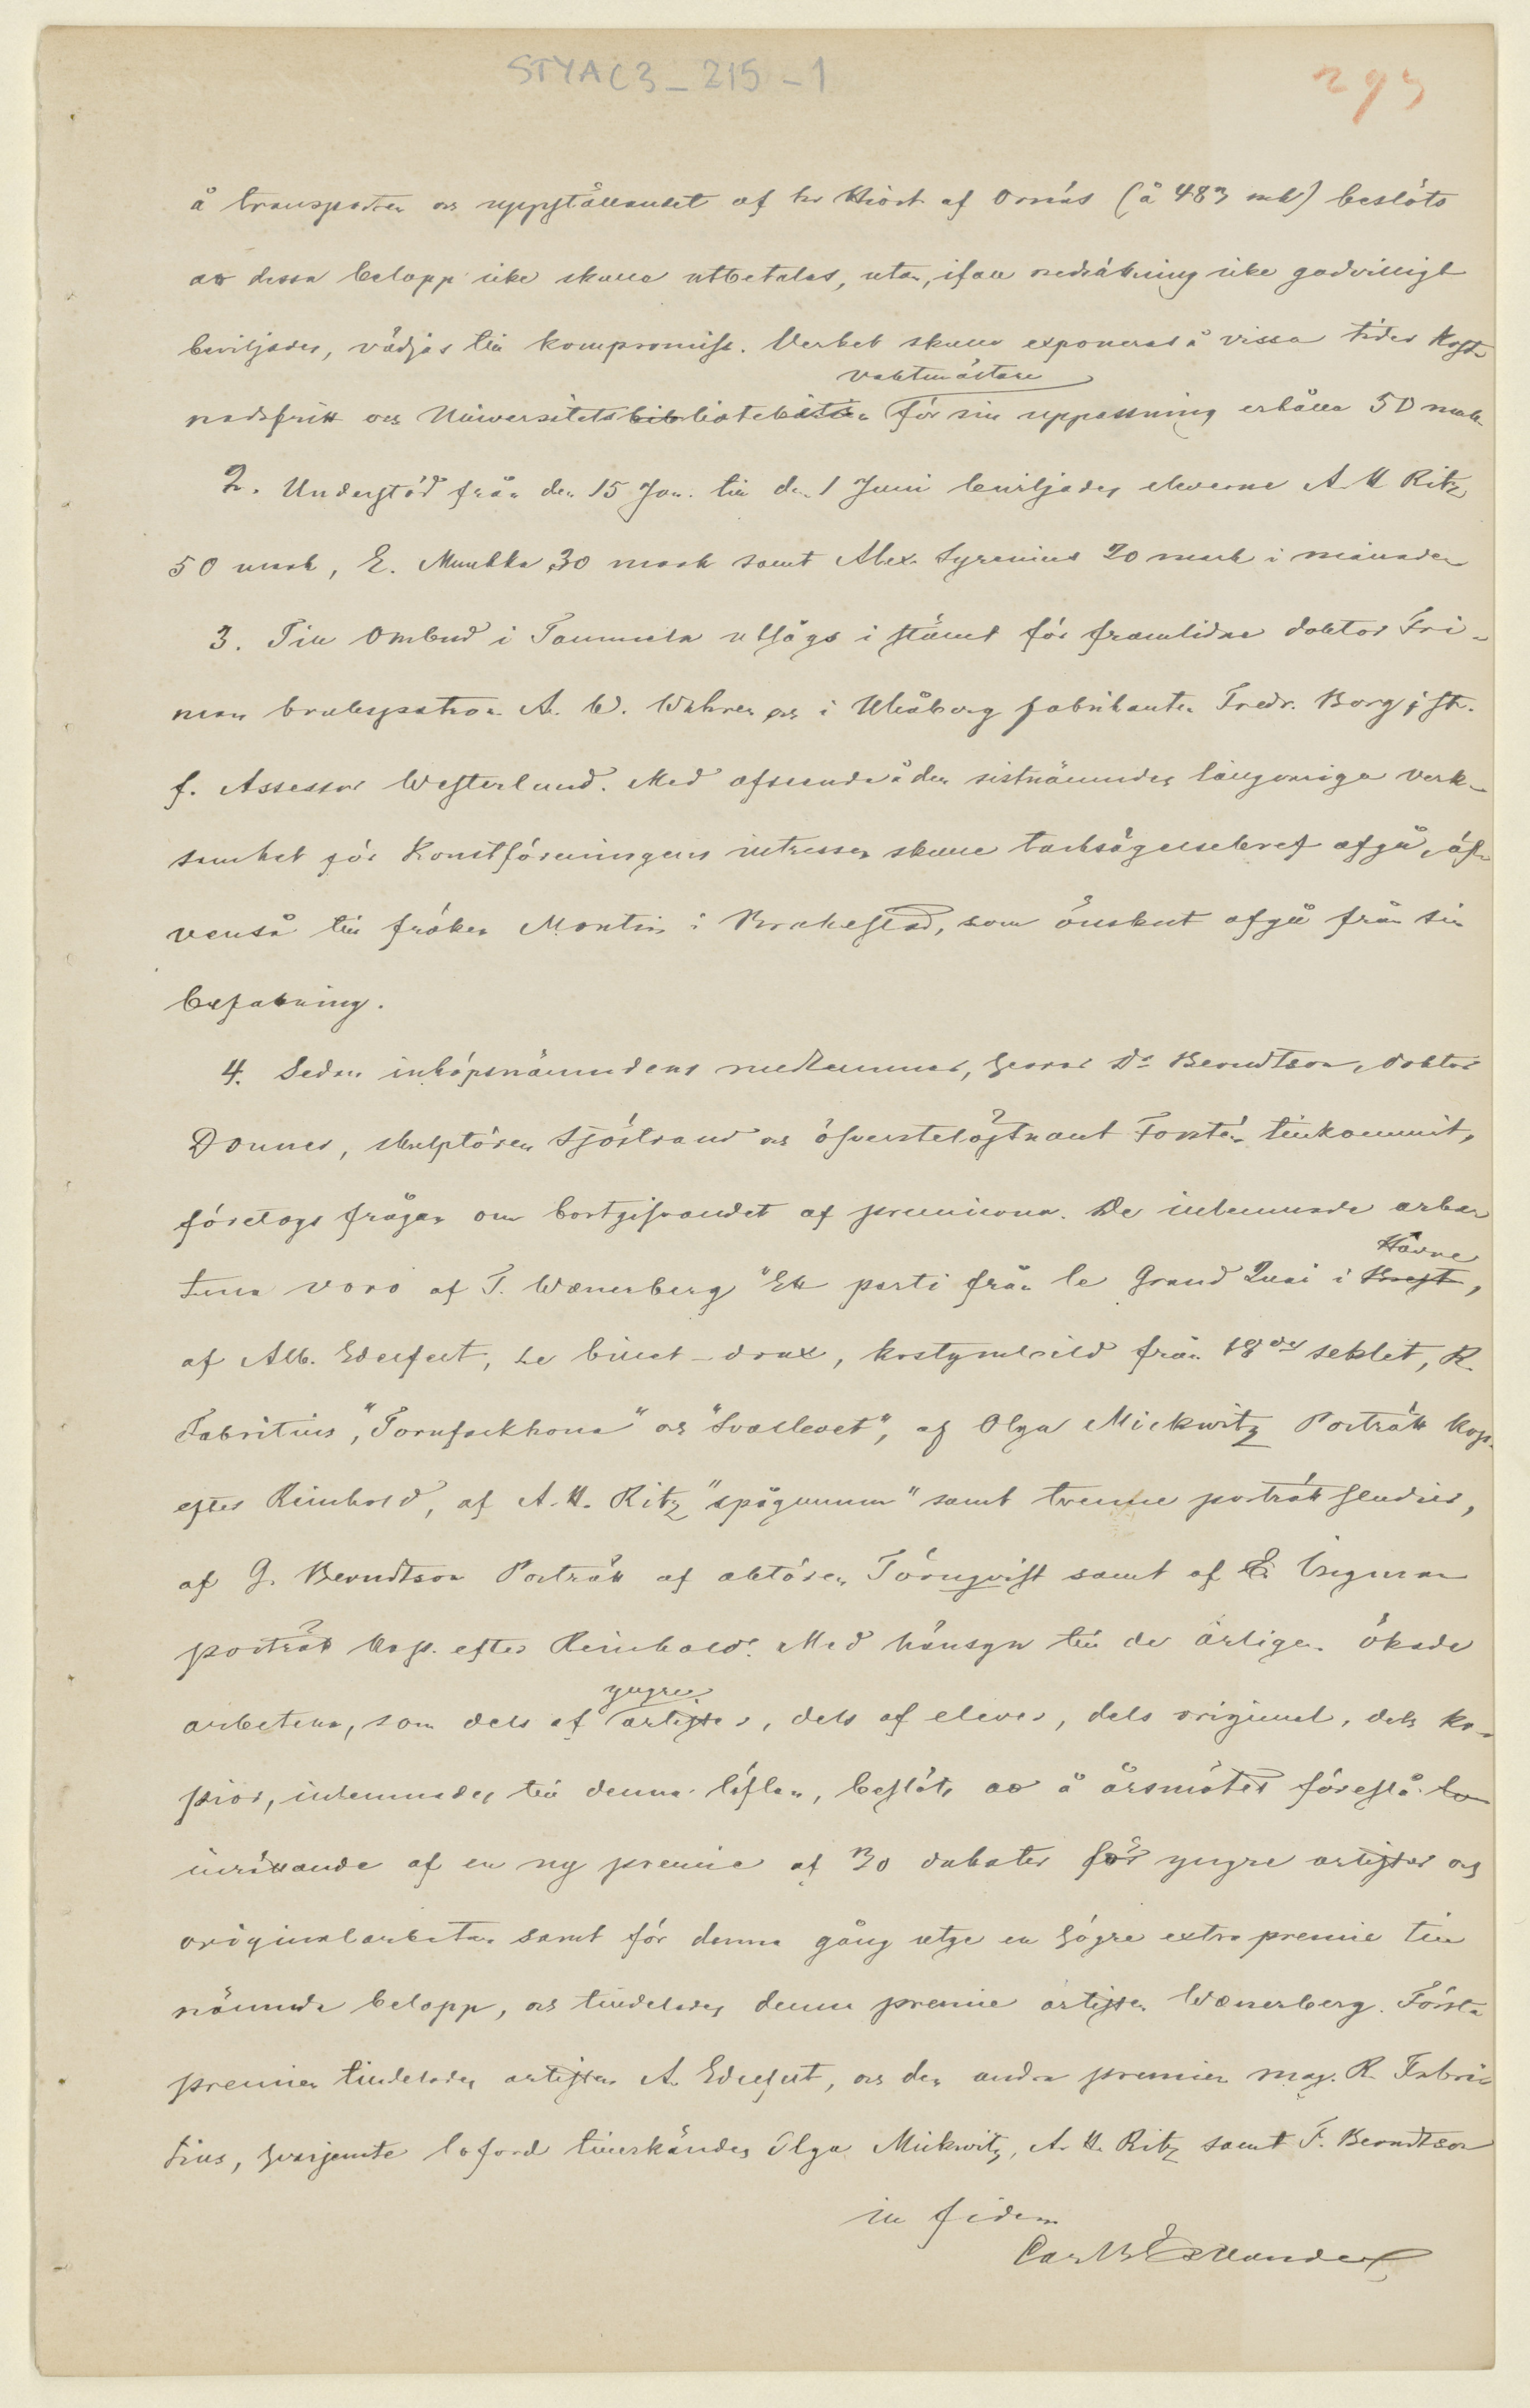 STYA C3_215-1
293
å transporten och uppställandet af hr Hiört af Ornäs (å 483 mk) beslöts
att dessa belopp icke skulle utbetalas, utan, ifall nedsätning icke godvilligt
beviljades, vädjas till kompromiss. Verket skulle exponeras å vissa tider kost-
vaktmästare
nadsfritt och Universitets för sin uppassning erhålla 50 mark
2. Understöd från den 15 Jan. till den 1 Juni beviljades eleverne A. H Ritz
50 mark, E. Munkka 30 mark samt Alex. Syrenius 20 mark i månaden
3. Till Ombud i Tammela utsågs i stället för framlidne doktor Fri-
man brukspatron A. W. Wahren och i Uleåborg fabrikanten Fredr. Borg i st.
f. Assessor Westerlund. Med afseende å den sistnämndes långvariga verk-
samhet för Konstföreningens intressen skulle tacksägelsebref afgå, äf-
venså till fröken Montin i Brahestad, som önskat afgå från sin
befattning.
4. Sedan inköpsnämndens medlemmar, herrar Dr Berndtson, doktor
Donner, skulptören Sjöstrand och öfverstelöjtnant Forstén tillkommit,
företogs frågan om bortgifvandet af premierna. De inlemnade arbe-
Havre
tena voro af T. Wænerberg "Ett parti från le Grand Quai i Brest,
af Alb. Edelfelt, Le billet-doux, kostymbild från 18de seklet, R.
Fabritius, "Tornfalkhona" och "Svallevet", af Olga Mickwitz Porträtt kop.
efter Reinhold, af A. H. Ritz "spågumma" samt trenne porträtt studier,
af G. Berndtson Porträtt af aktören Törnqvist samt af E.
porträtt kop. efter Reinhold. Med hänsyn till de årligen ökade
yngre
arbetena, som dels af artister, dels af elever, dels original, dels ko-
pior, inlemnades till denna täflan, beslöts att å årsmötet föreslå
inrättande af en ny premie af 30 dukater för yngre artister och
originalarbeten samt för denna gång utge en högre extra premie till
nämnda belopp, och tilldelades denna premie artisten Wænerberg. Första
premien tilldelades artisten A. Edelfelt, och den andra premien mag. R. Fabri-
tius, hvarjemte loford tillerkändes Olga Mickwitz, A. H. Ritz samt F. Berndtson
in fidem
Carl G Estlander